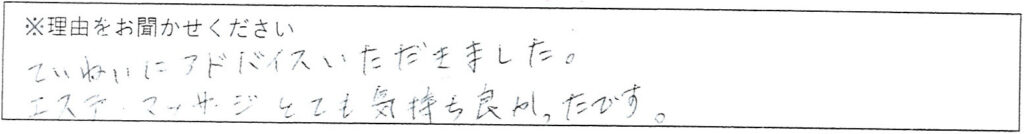 ※理由をお聞かせください
ていねいにアドバイスいただきました。
エステ・マッサージとても気持ち良かったです。